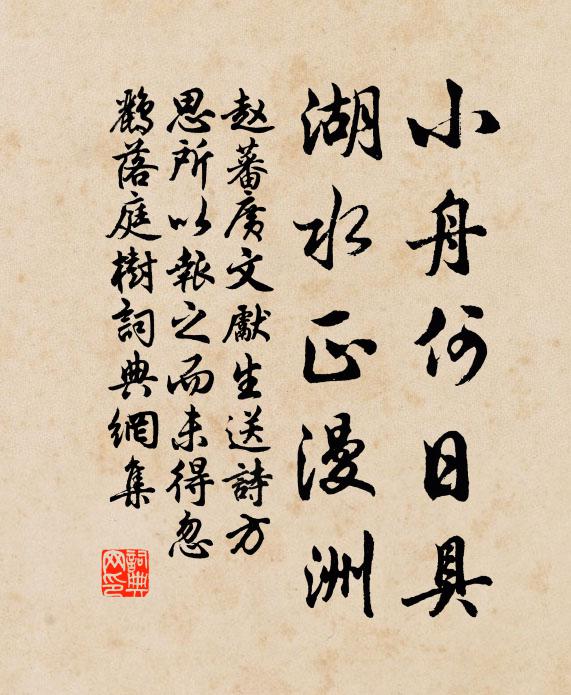 小舟何日具
湖水正漫洲
赵蕃廣文獻生送詩方
思所以報之而未得忽
鵲落庭樹詞典網集
詞典
网印